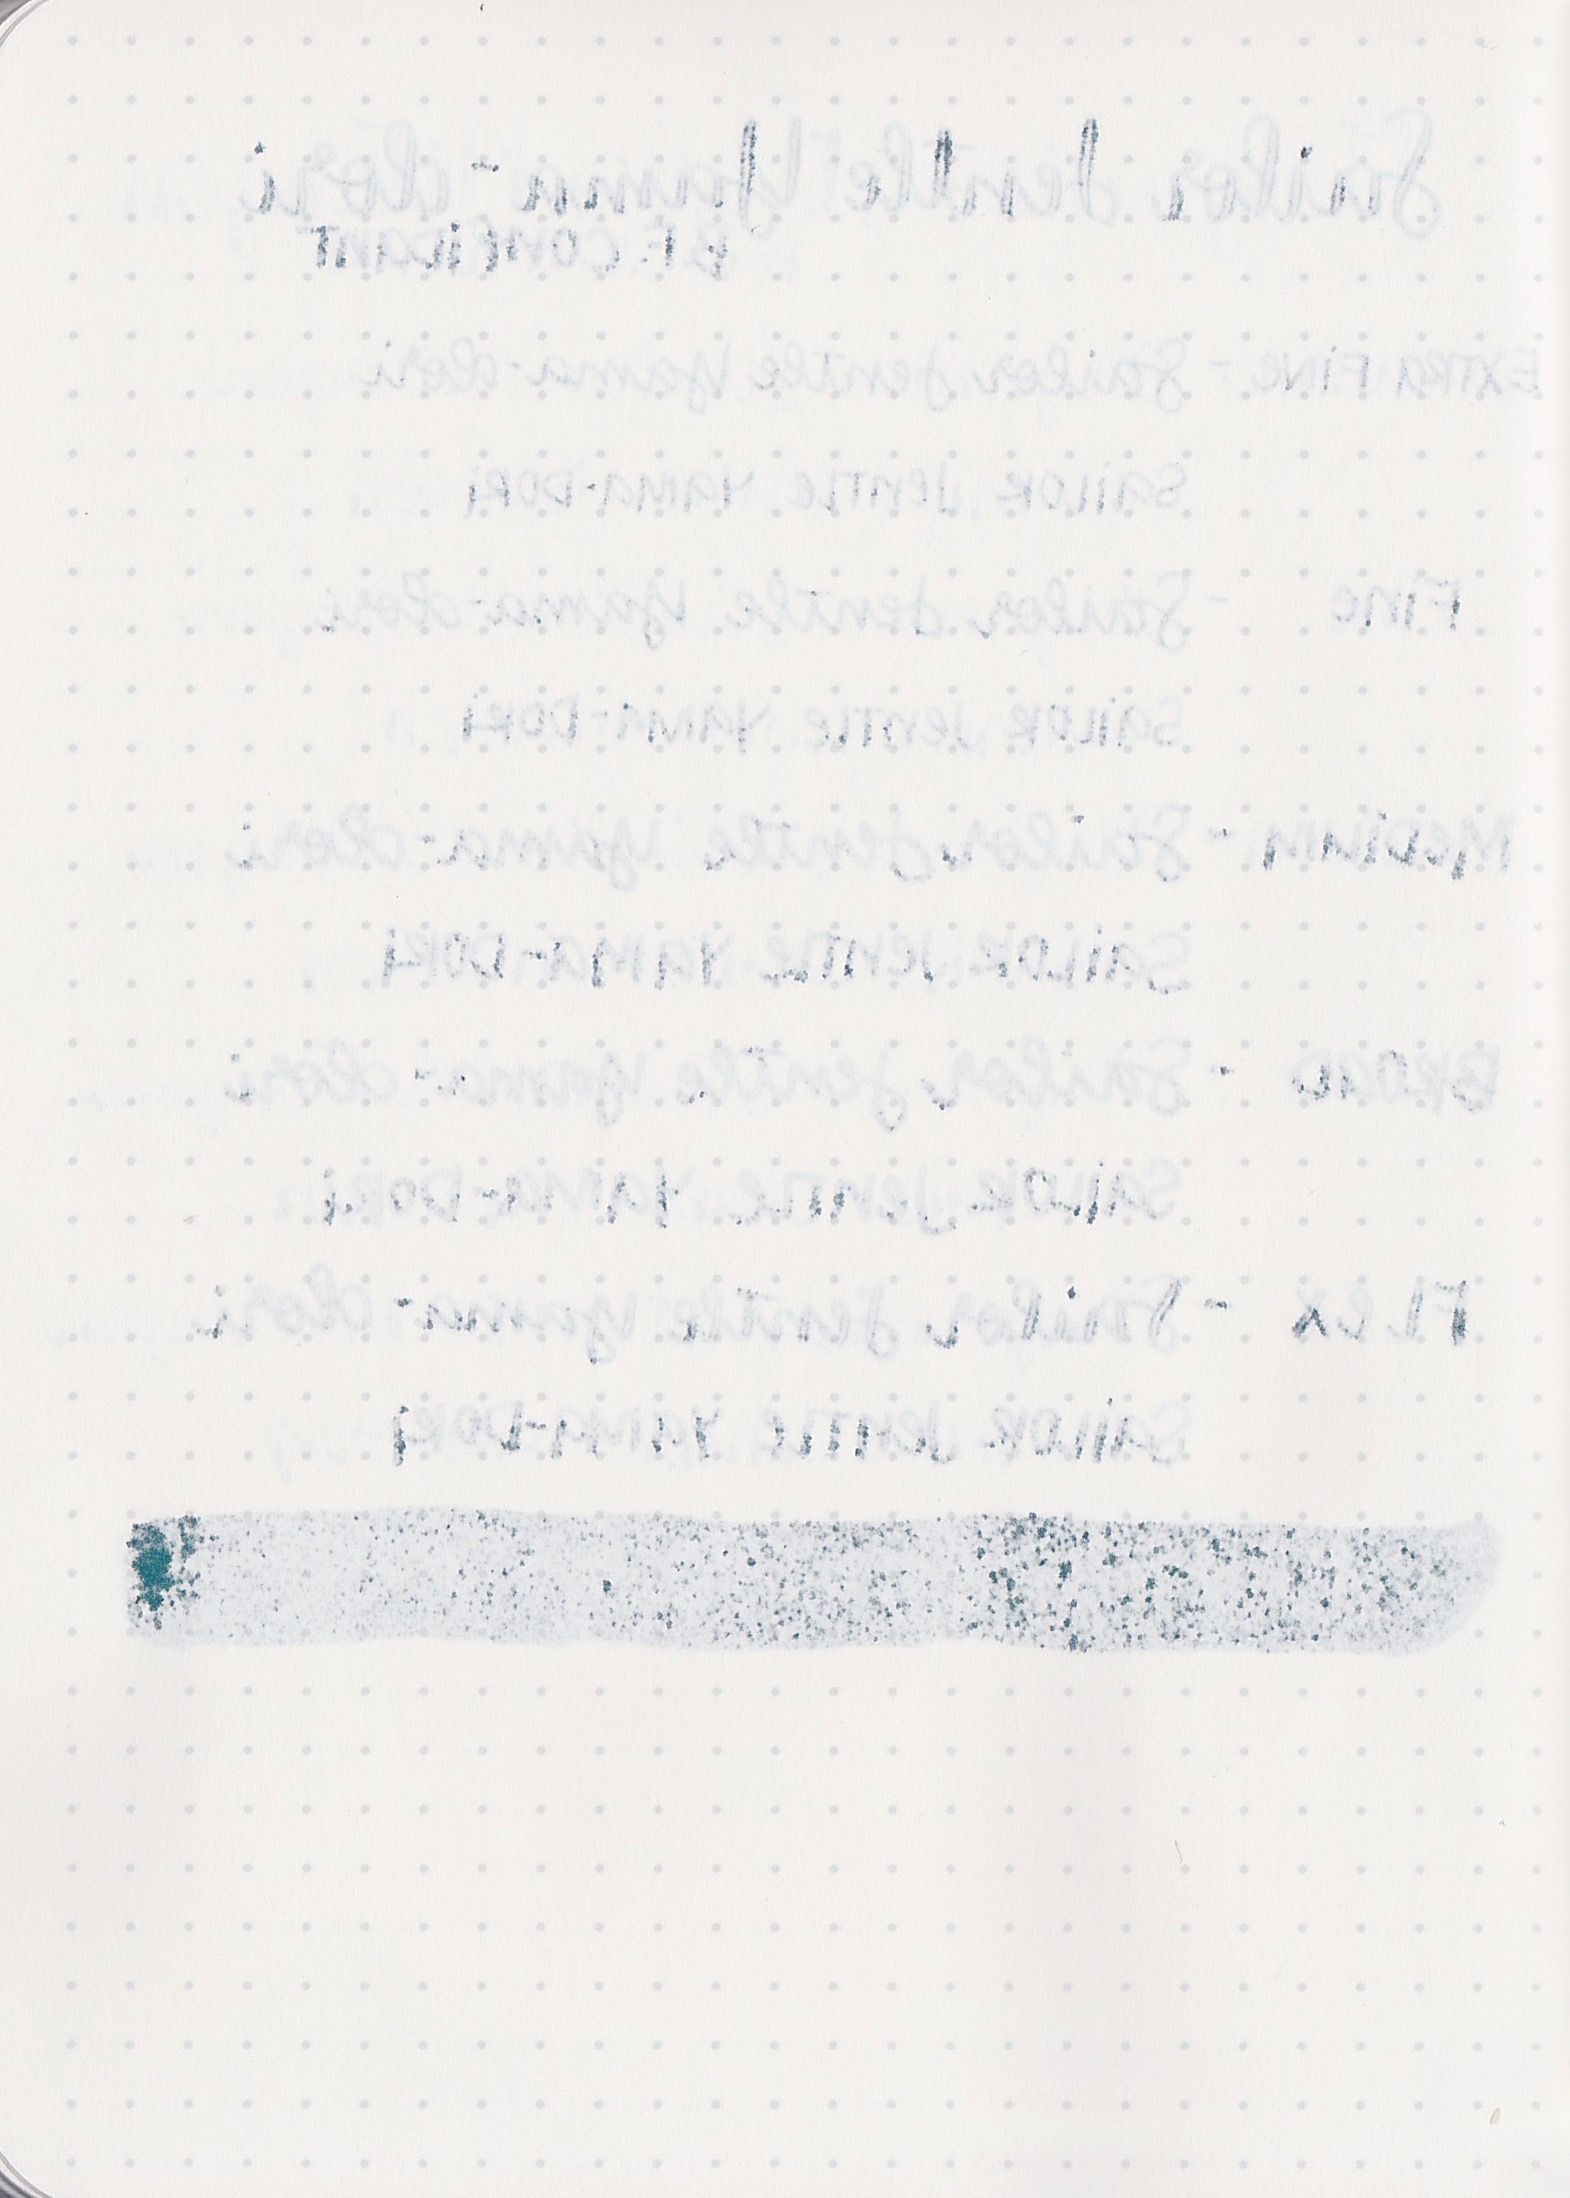 Sailor Jentle Yama-dori
B.F. CONFIDANT
EXTRA FINE - Sailor Jentle Yama-dori
SAILOR JENTLE YAMA-DORI
FINE - Sailor Jentle Yama-dori
SAILOR JENTLE YAMA-DORI
MEDIUM - Sailor Jentle Yama-dori
SAILOR JENTLE YAMA-DORI
BROAD - Sailor Jentle Yama-dori
SAILOR JENTLE YAMA-DORI
FLEX - Sailor Jentle Yama-dori
SAILOR JENTLE YAMA-DORI